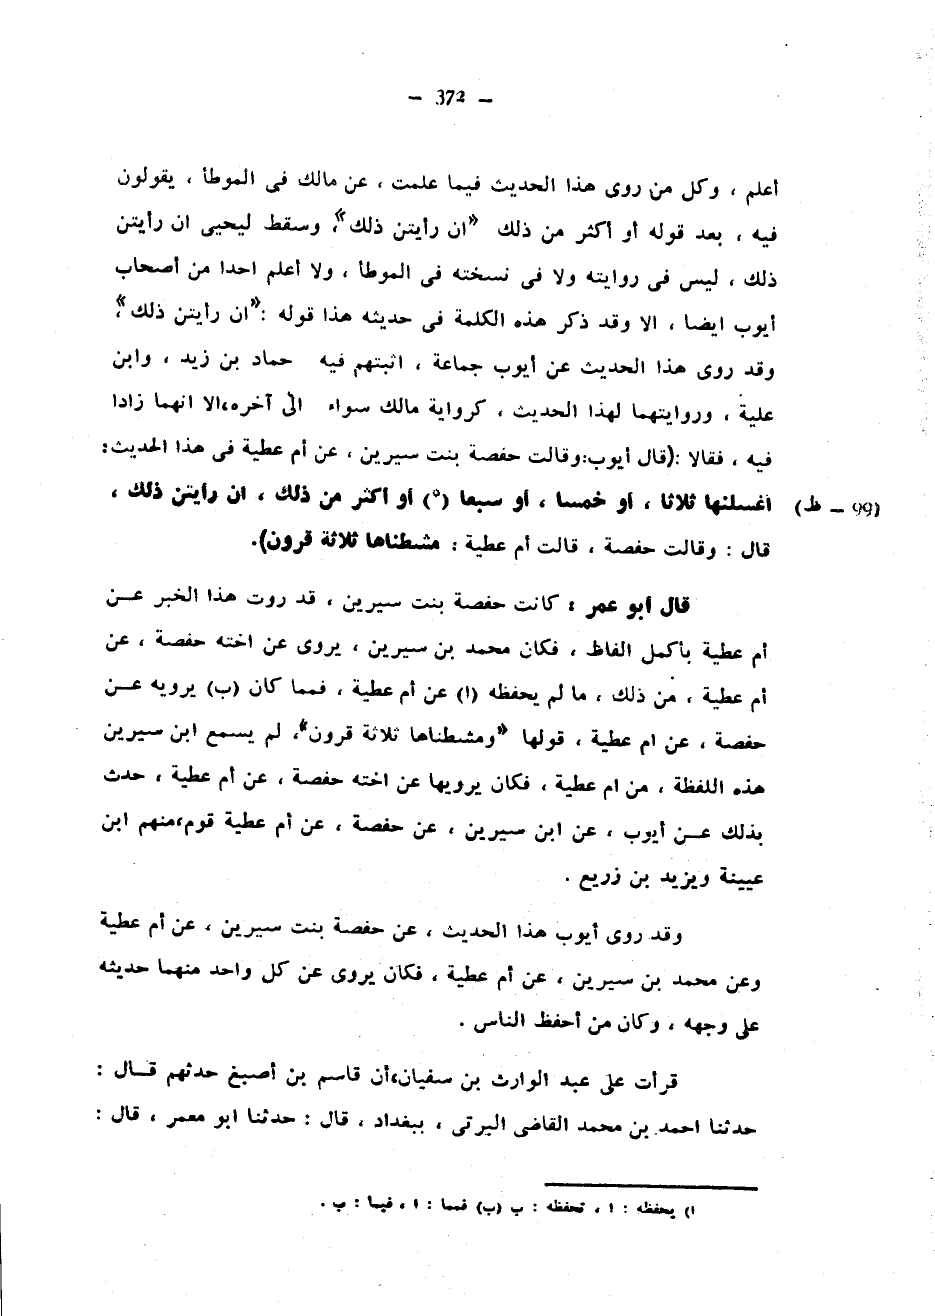 — 372 —
أعلم ، وكل من روى هذا الحديث فيما علمت ، عن مالك فى الموطأ ، يقولون
فيه ، بعد قوله أو أكثر من ذلك «ان رأيتن ذلك»، وسقط ليحيى ان رأيتن
ذلك ، ليس فى روايته ولا فى نسخته فى الموطأ ، ولا أعلم احدا من أصحاب
أيوب ايضا ، الا وقد ذكر هذه الكلمة فى حديثه هذا قوله :«ان رأيتن ذلك»؛
وقد روى هذا الحديث عن أيوب جماعة ، اثبتهم فيه حماد بن زيد ، وابن
علية ، وروايتهما لهذا الحديث ، كرواية مالك سواء الى آخره،الا انهما زادا
فيه ، فقالا :(قال أيوب:وقالت حفصة بنت سيرين ، عن أم عطية فى هذا الحديث:
(99 – ظ) اغسلنها ثلاثا ، أو خمسا ، أو سبعا (*) أو أكثر من ذلك ، ان رأيتن ذلك ،
قال : وقالت حفصة ، قالت أم عطية : مشطناها ثلاثة قرون).
قال ابو عمر : كانت حفصة بنت سيرين ، قد روت هذا الخبر عــن
أم عطية بأكمل الفاظ ، فكان محمد بن سيرين ، يروى عن اخته حفصة ، عن
أم عطية ، من ذلك ، ما لم يحفظه (ا) عن أم عطية ، فمما كان (ب) يرويه عــن
حفصة ، عن ام عطية ، قولها «ومشطناها ثلاثة قرون»، لم يسمع ابن سيرين
هذه اللفظة ، من ام عطية ، فكان يرويها عن اخته حفصة ، عن أم عطية ، حدث
بذلك عــن أيوب ، عن ابن سيرين ، عن حفصة ، عن أم عطية قوم،منهم ابن
عيينة ويزيد بن زريع .
وقد روى أيوب هذا الحديث ، عن حفصة بنت سيرين ، عن أم عطية
وعن محمد بن سيرين ، عن أم عطية ، فكان يروى عن كل واحد منهما حديثه
على وجهه ، وكان من أحفظ الناس .
قرأت على عبد الوارث بن سفيان،أن قاسم بن أصبغ حدثهم قــال :
حدثنا احمد بن محمد القاضى البرتى ، ببغداد ، قال : حدثنا ابو معمر ، قال :
ا) يحفظه : ا ، تحفظه : ب (ب) فمما : ا ، فيما : ب .